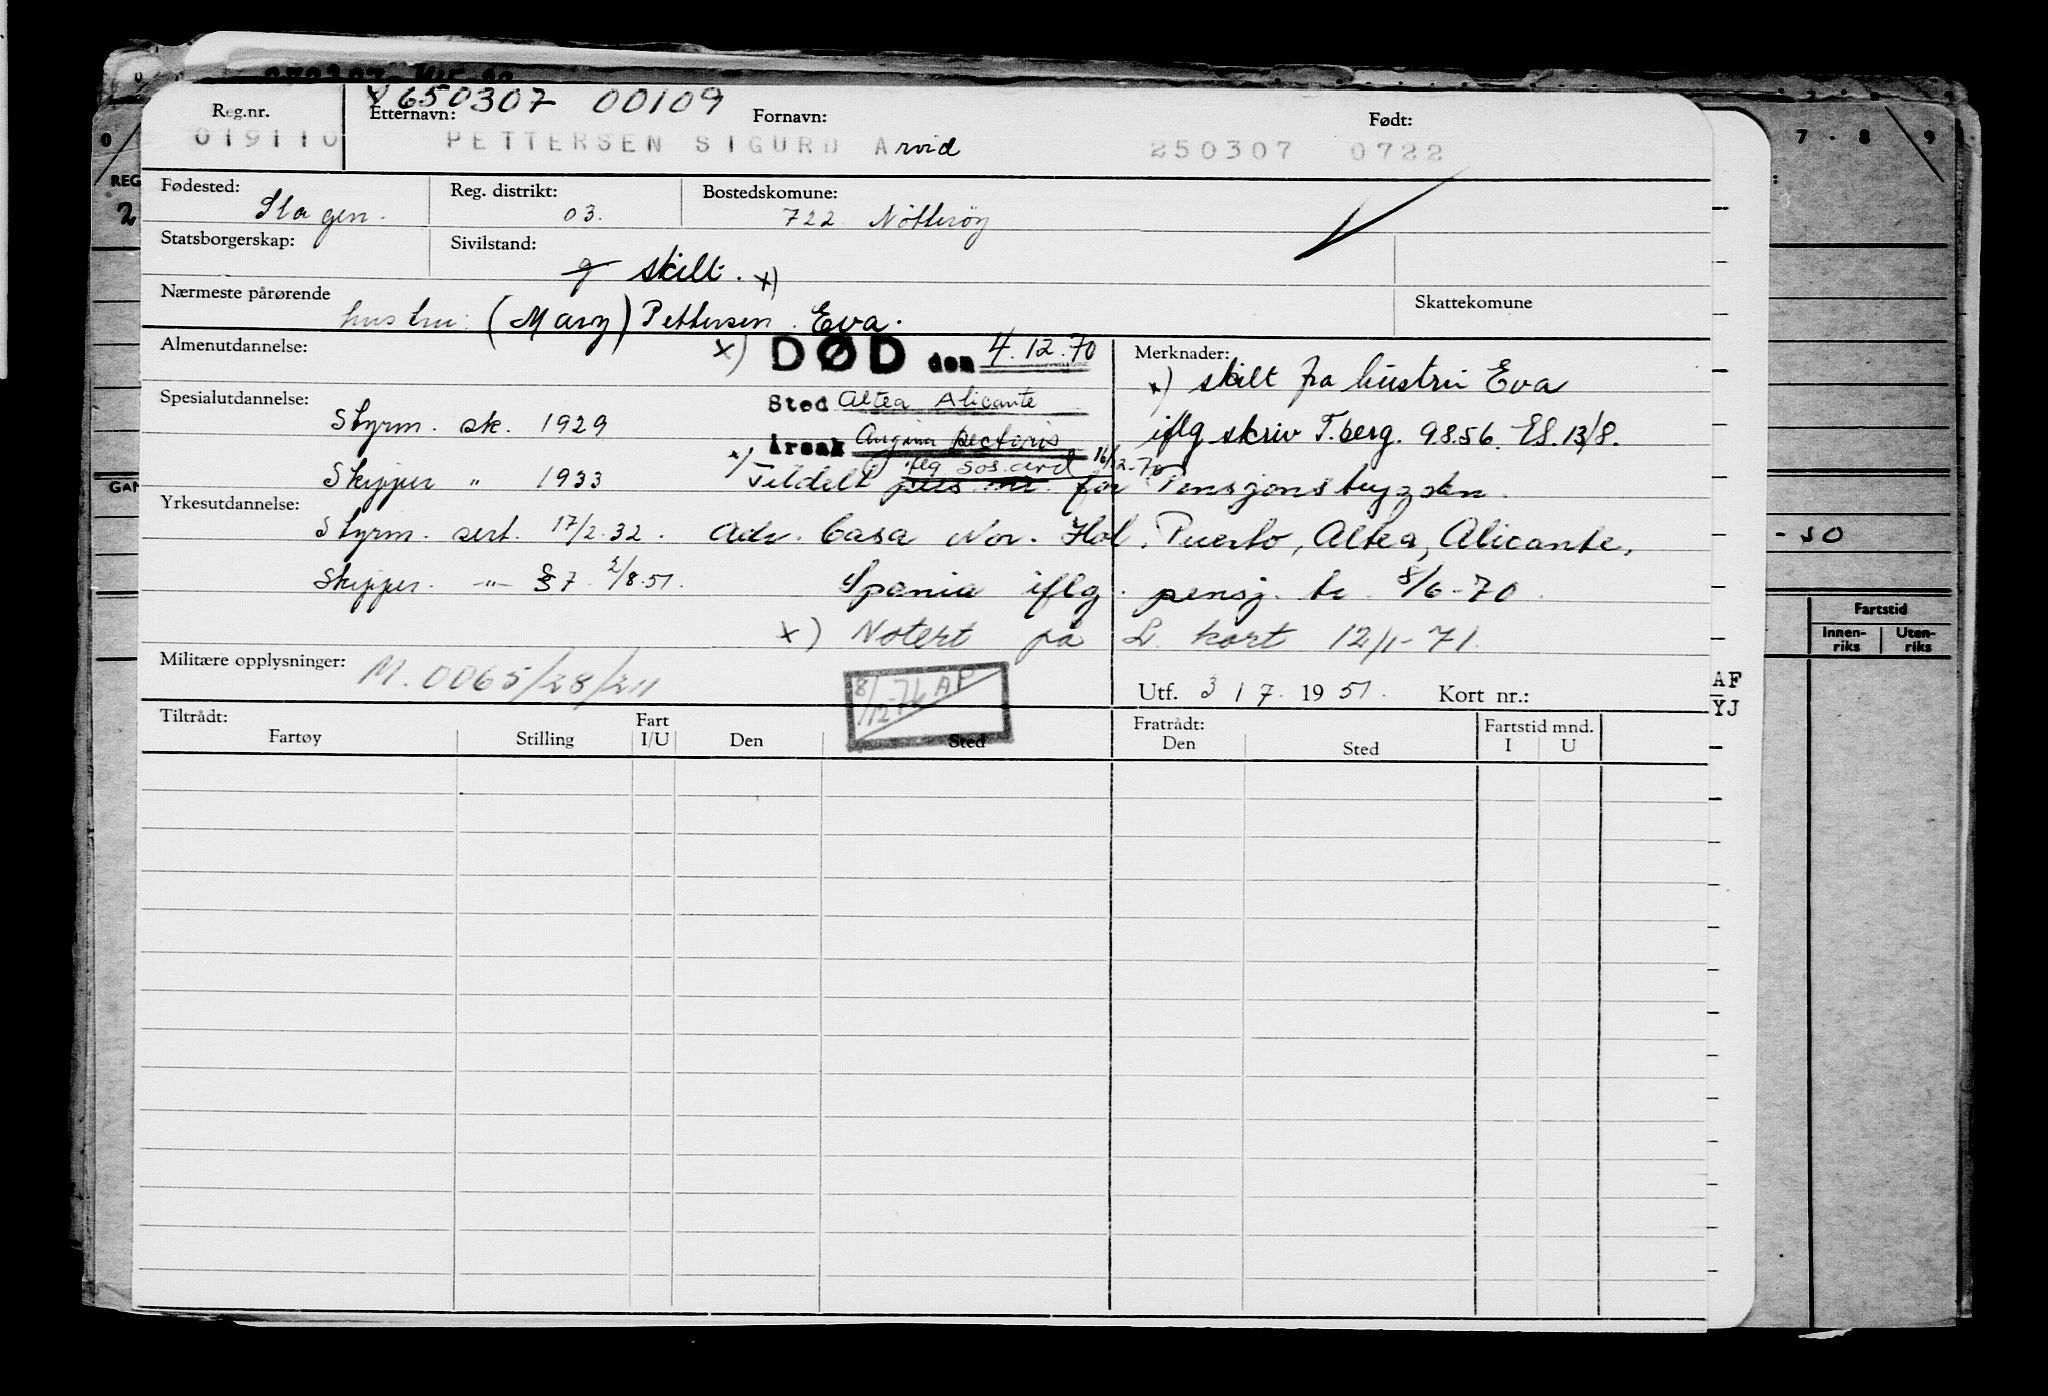 650307 00109
Reg.nr. Etternavn: Fornavn: Født:
019110 PETTERSEN SIGURD Arvid 250307 0722
Fødested: Reg. distrikt: Bostedskomune:
Slagen. 03. 722 Nøtterøy
Statsborgerskap: Sivilstand:
g skilt. x)
Nærmeste pårørende Skattekomune
hustru: (Mary) Pettersen. Eva.
Almenutdannelse: x) DØD den 4.12.70 Merknader:
x) skilt fra hustru Eva
Spesialutdannelse: Sted Altea Alicante
Styrm. sk. 1929 årsak Angina pectoris iflg skriv T.berg. 9856. ES. 13/8.
iflg sos. avd 16/12-70
Skipper " 1933 x) Tildelt pens. nr. for Pensjonstrygden.
Yrkesutdannelse:
Styrm. sert. 17/2.32. Adr. Casa Nor. Hol, Puerto, Altea, Alicante,
Skipper. -"- §7. 2/8.51. Spania iflg. pensj. tr. 8/6-70.
x) Notert på L. kort 12/1-71.
Militære opplysninger: M.0065/28/211
8/12-76 AP
Utf. 3 / 7. 1951. Kort nr.:
AF
YJ
Tiltrådt: Fratrådt:
Fartøy Stilling Fart I/U Den Sted Den Sted Fartstid mnd. I U
0 7 - 8 9
REG
2
GAN
- 50
Fartstid
Innen-riks Uten-riks